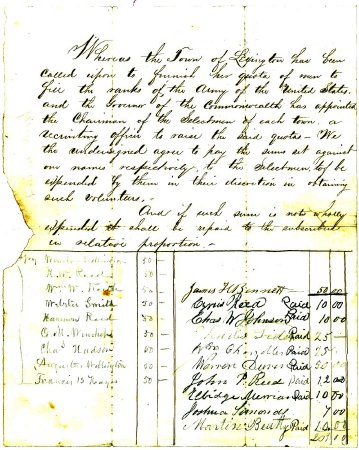 Whereas the Town of Lexington has been
called upon to furnish her quota of men to
fill the ranks of the Army of the United States
and the Govenor of the Commonwealth has appointed
the Chairman of the Selectmen of each town, a
recruiting officer to raise the said quotas - We
the undersigned agree to pay the sums set against
our names respectively to the Selectmen to be
expended by them in their discretion in obtaining
such volunteers. -
And if such sum is not wholly
expended it shall be repaid to the subscribers
in relative proportion. -
50 -
H. W. Reed 50 -
Wm W. 50 -
Webster Smith 50 -
Hammon Reed 50 -
50 -
Chas Hudson 50 -
Augustus Wellington 50 -
Francis 50 -
James H Bennett 50.00
Reed Paid 10 00
Chas W Johnson Paid 10.00
Paid 25 -
Chandler Paid 25
Warren Paid 50
John P. Reed Paid 12 00
Elbridge Merriam Paid 10 00
Joshua Simonds 7 00
Martin Paid 10.00